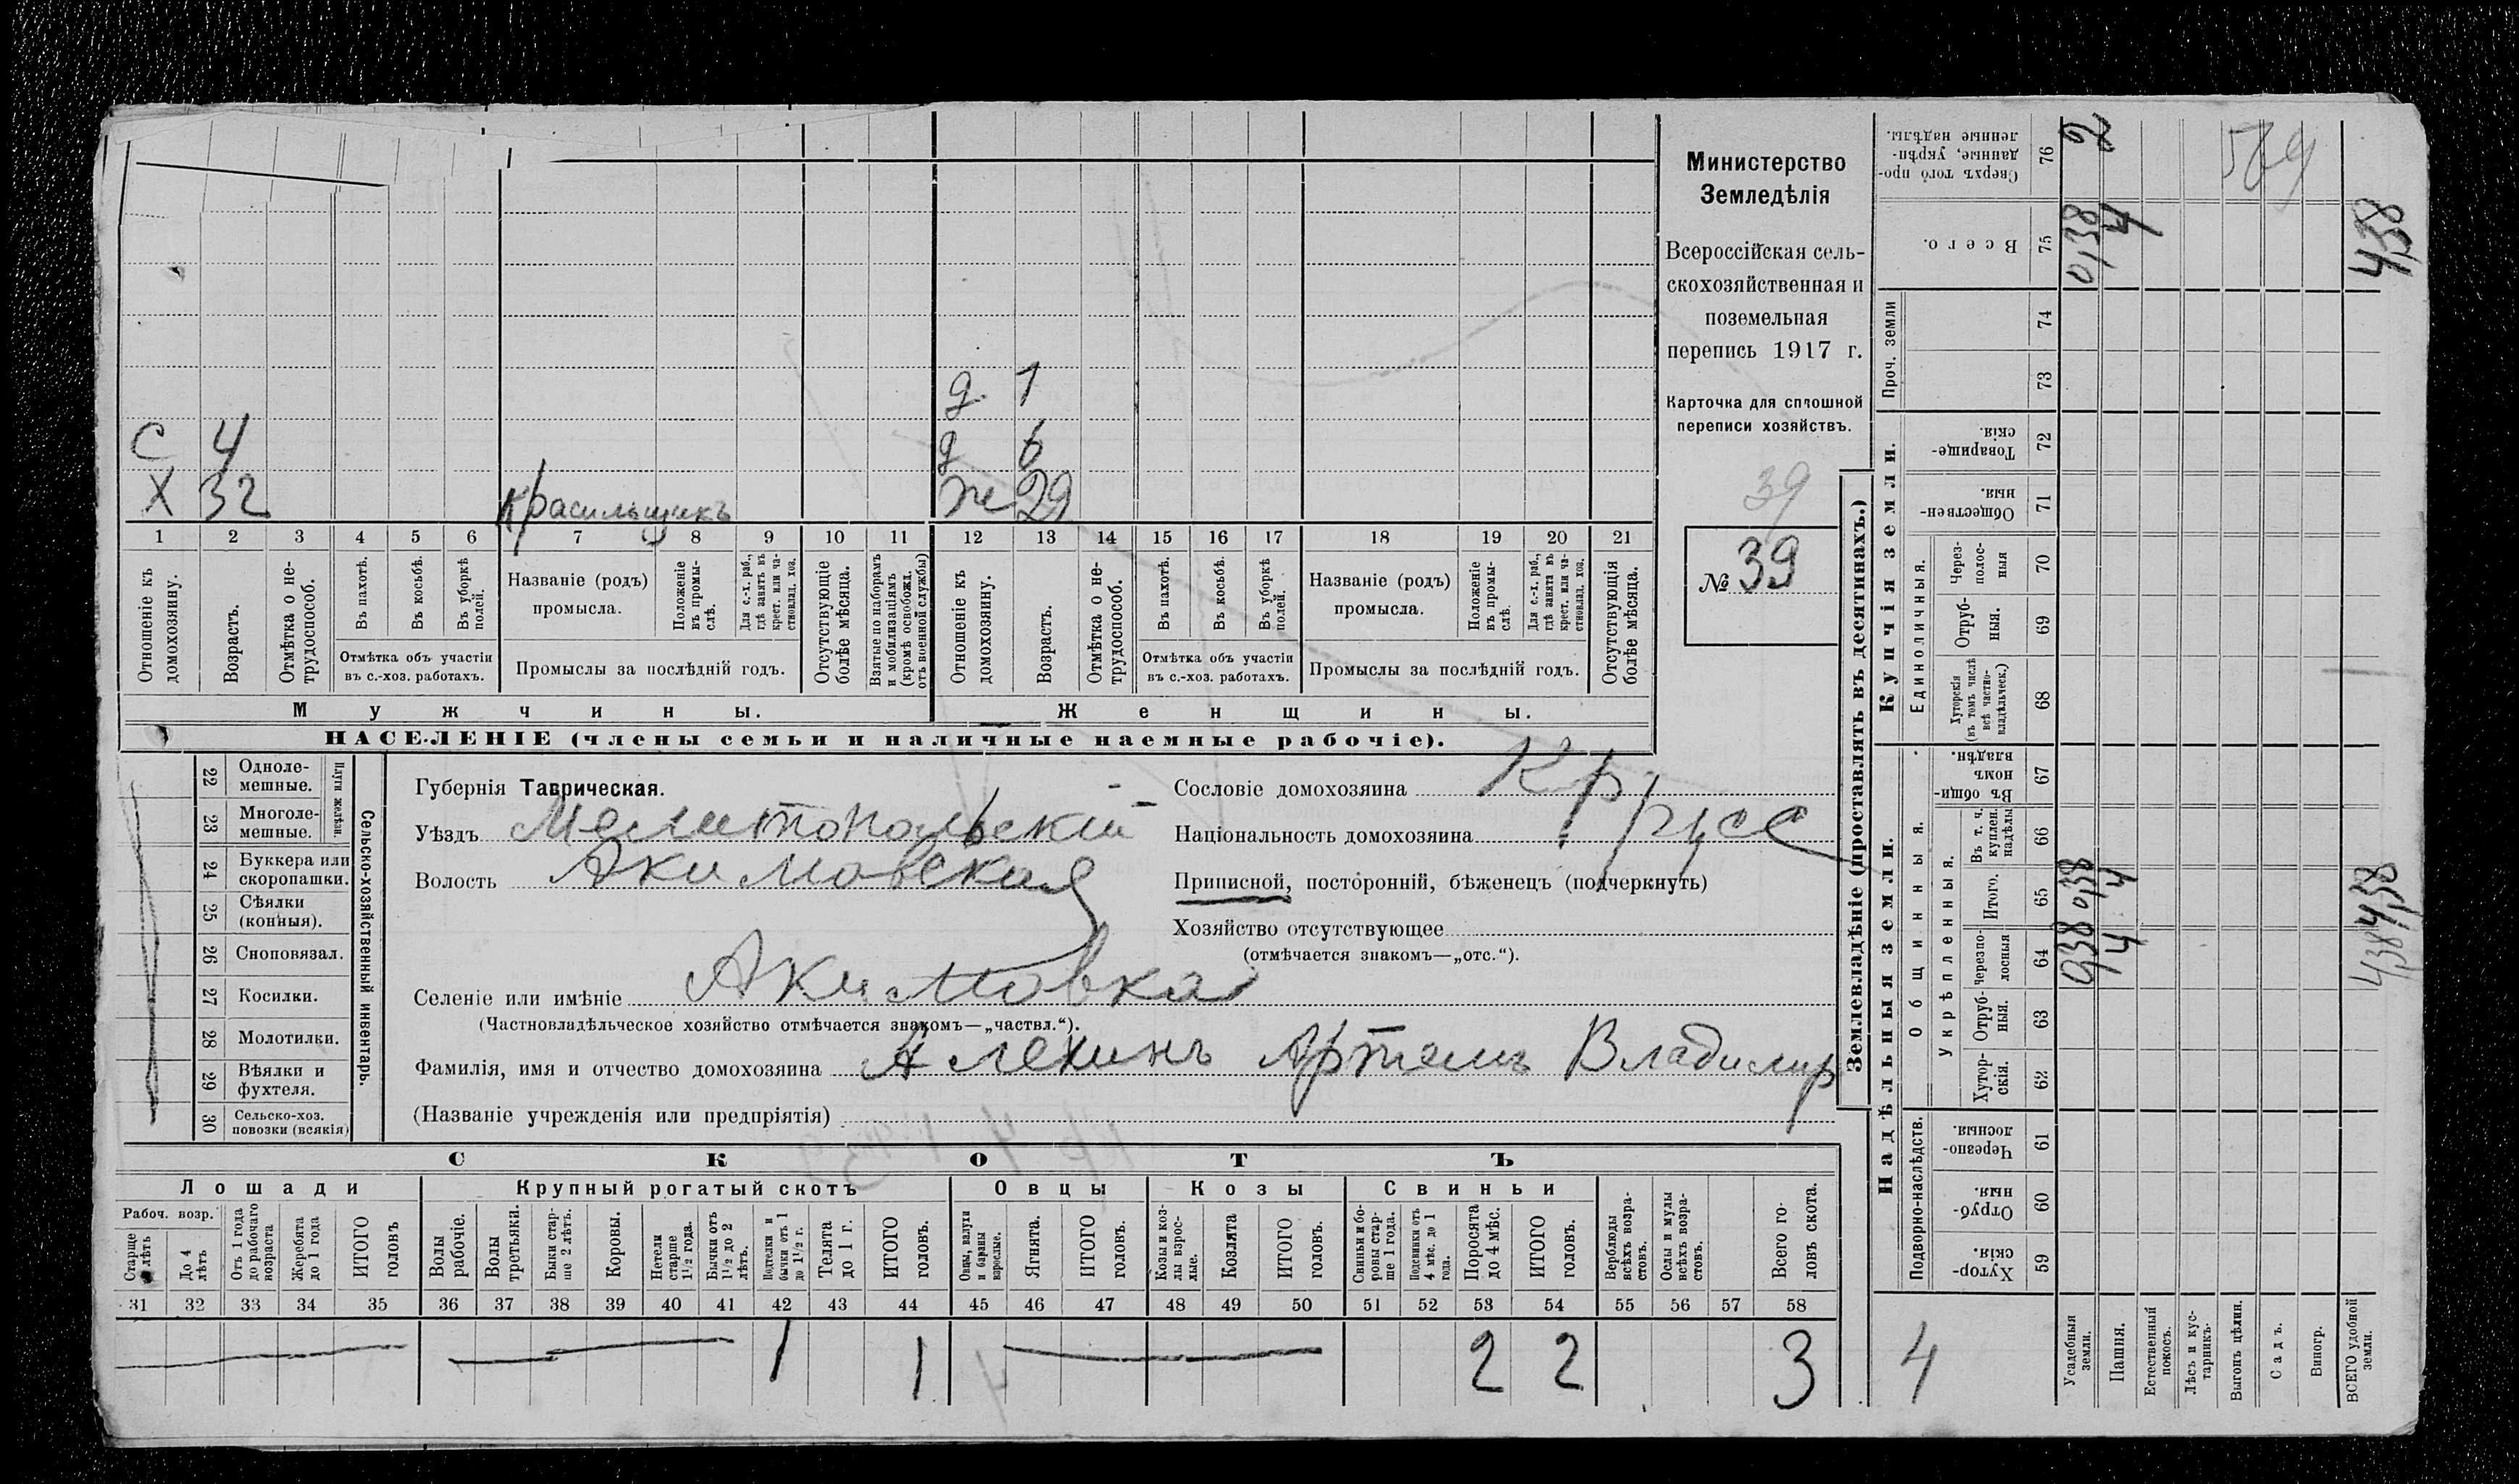 Министерство
Земледѣлія
Всероссійская сель-
скохозяйственная и
поземельная
перепись 1917 г.
Карточка для сплошной
переписи хозяйствъ.
39
№ 39
д. 1
С 4 д 6
Х 32 красильщикъ ж 29
1 2 3 4 5 6 7 8 9 10 11 12 13 14 15 16 17 18 19 20 21
Отношеніе къ домохозяину.
Возрастъ.
Отмѣтка о не-трудоспособ.
Въ пахотѣ.
Въ косьбѣ.
Въ уборкѣ полей.
Отмѣтка объ участіи
въ с.-хоз. работахъ.
Названіе (родъ)
промысла.
Положеніе въ промы-слѣ.
Для с.-х. раб., гдѣ занятъ въ крест. или ча-стновлад. хоз.
Промыслы за послѣдній годъ.
Отсутствующіе болѣе мѣсяца.
Взятые по наборамъ и мобилизаціямъ (кромѣ освобожд. отъ военной службы)
Отношеніе къ домохозяину.
Возрастъ.
Отмѣтка о не-трудоспособ.
Въ пахотѣ.
Въ косьбѣ.
Въ уборкѣ полей.
Отмѣтка объ участіи
въ с.-хоз. работахъ.
Названіе (родъ)
промысла.
Положеніе въ промы-слѣ.
Для с.-х. раб., гдѣ занята въ крест. или ча-стновлад. хоз.
Промыслы за послѣдній годъ.
Отсутствующія болѣе мѣсяца.
Мужчины.
Женщины.
НАСЕЛЕНІЕ (члены семьи и наличные наемные рабочіе).
22 Одноле-мешные.
23 Многоле-мешные.
Плуги желѣзн.
24 Буккера или скоропашки.
25 Сѣялки (конныя).
26 Сноповязал.
27 Косилки.
28 Молотилки.
29 Вѣялки и фухтеля.
30 Сельско-хоз. повозки (всякія)
Сельско-хозяйственный инвентарь.
Губернія Таврическая.
Уѣздъ Мелитопольскій
Волость Акимовская
Сословіе домохозяина Кр
Національность домохозяина русс
Приписной, посторонній, бѣженецъ (подчеркнуть)
Хозяйство отсутствующее
(отмѣчается знакомъ—„отс.“).
Селеніе или имѣніе Акимовка
(Частновладѣльческое хозяйство отмѣчается знакомъ—„частвл.“).
Фамилія, имя и отчество домохозяина Алехинъ Артемъ Владимир
(Названіе учрежденія или предпріятія)
СКОТЪ
Лошади
Крупный рогатый скотъ
Овцы
Козы
Свиньи
Рабоч. возр.
Старше лѣтъ
До 4 лѣтъ
Отъ 1 года до рабочаго возраста
Жеребята до 1 года
ИТОГО головъ
Волы рабочіе.
Волы третьяки.
Быки стар-ше 2 лѣтъ.
Коровы.
Нетели старше 1½ года.
Бычки отъ 1½ до 2 лѣтъ.
Подтелки и бычки отъ 1 до 1½ г.
Телята до 1 г.
ИТОГО головъ.
Овцы, валухи и бараны взрослые.
Ягнята.
ИТОГО головъ.
Козы и коз-лы взрос-лые.
Козлята
ИТОГО головъ.
Свиньи и бо-ровы стар-ше 1 года.
Подсвинки отъ 4 мѣс. до 1 года.
Поросята до 4 мѣс.
ИТОГО головъ.
Верблюды всѣхъ возра-стовъ.
Ослы и мулы всѣхъ возра-стовъ.
Всего го-ловъ скота.
31 32 33 34 35 36 37 38 39 40 41 42 43 44 45 46 47 48 49 50 51 52 53 54 55 56 57 58
1 1 2 2 3
Землевладѣніе (проставлять въ десятинахъ.)
Сверхъ того про-данные, укрѣп-ленные надѣлы. 76
Всего. 75 0,38 4 4,38
569
Проч. земли 74
73
Купчія земли.
Товарище-скія. 72
Обществен-ныя. 71
Единоличныя.
Через-полос-ныя 70
Отруб-ныя. 69
Хуторскія (въ томъ числѣ всѣ частно-владѣльческ.) 68
Надѣльныя земли.
Общинныя.
Въ общи-номъ владѣн. 67
Укрѣпленныя.
Въ т. ч. куплен. надѣлы 66
Итого. 65 0,38 4 4,38
Черезпо-лосныя 64 0,38 4 4,38
Отруб-ныя. 63
Хутор-скія. 62
Подворно-наслѣдств.
Черезпо-лосныя. 61
Отруб-ныя. 60
Хутор-скія. 59
4
Усадебныя земли.
Пашня.
Естественный покосъ.
Лѣсъ и кус-тарникъ.
Выгонъ цѣлин.
Садъ.
Виногр.
ВСЕГО удобной земли.